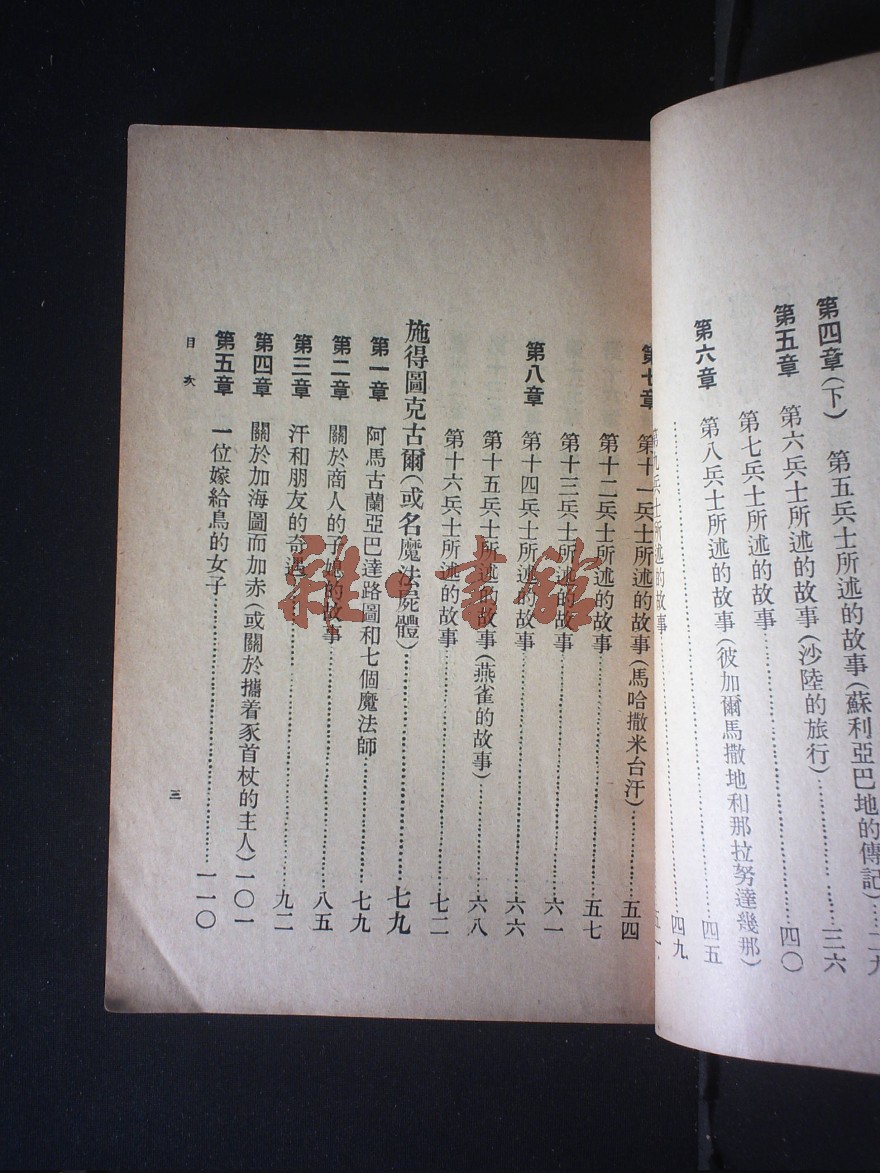 第四章(下) 第五兵士所述的故事(蘇利亞巴地的傳記)…二九
第五章 第六兵士所述的故事(沙陸的旅行)……三六
第七兵士所述的故事……四〇
第六章 第八兵士所述的故事(彼加爾馬撒地和那拉努達幾那)四五
……四九
第九兵士所述的故事……五一
第七章 第十一兵士所述的故事(馬哈撒米台汗)……五四
第十二兵士所述的故事……五七
第十三兵士所述的故事……六一
第八章 第十四兵士所述的故事……六六
第十五兵士所述的故事(燕雀的故事)……六八
第十六兵士所述的故事……七二
施得圖克古爾(或名魔法屍體)……七九
第一章 阿馬古蘭亞巴達路圖和七個魔法師……七九
第二章 關於商人的子媳的故事……八五
第三章 汗和朋友的奇遇……九二
第四章 關於加海圖而加赤(或關於攜着豕首杖的主人)一〇一
第五章 一位嫁給鳥的女子……一一〇
目次
三
雜·書館